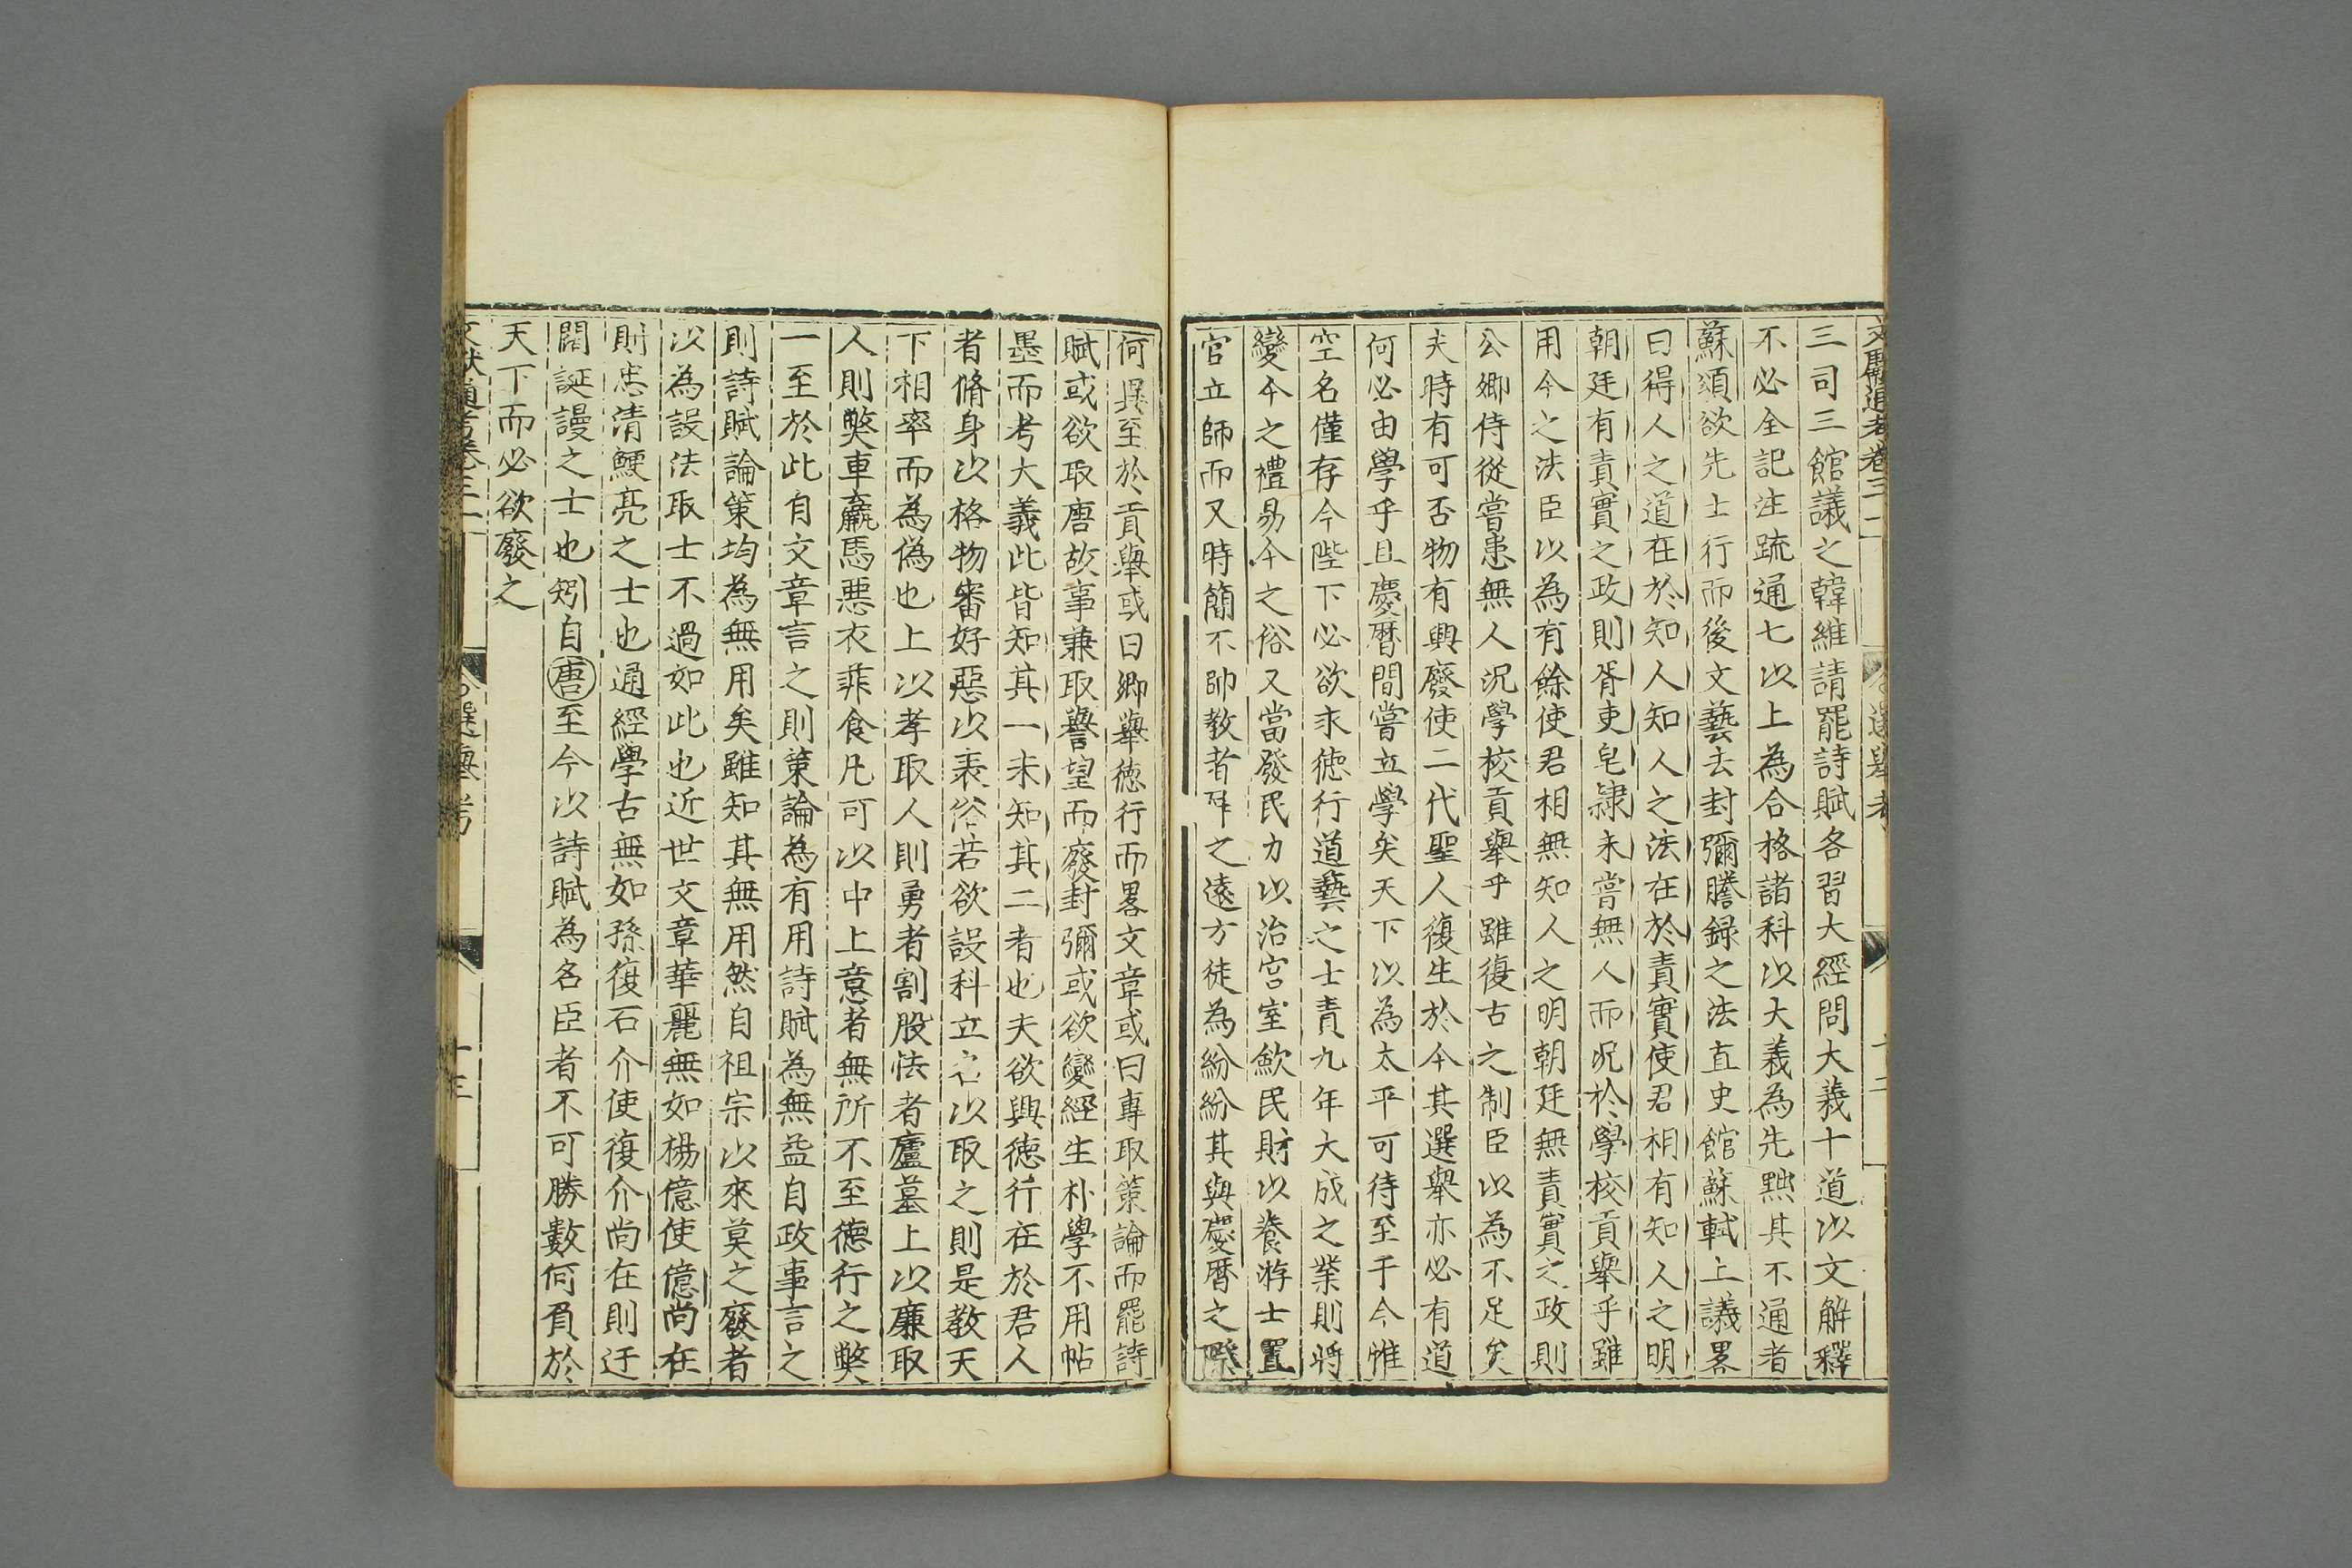 文獻通考卷三十一
選舉考
十二
三司三館議之韓維請罷詩賦各習大經問大義十道以文解釋
不必全記注疏通七以上為合格諸科以大義為先黜其不通者
蘇頌欲先士行而後文藝去封彌謄録之法直史館蘇軾上議畧
曰得人之道在於知人知人之法在於責實使君相有知人之明
朝廷有責實之政則胥吏皂隷未嘗無人而况於學校貢舉乎雖
用今之法臣以為有餘使君相無知人之明朝廷無責實之政則
公卿侍從嘗患無人况學校貢舉乎雖復古之制臣以為不足矣
夫時有可否物有興廢使三代聖人復生於今其選舉亦必有道
何必由學乎且慶暦間嘗立學矣天下以為太平可待至于今惟
空名僅存今陛下必欲求徳行道藝之士責九年大成之業則將
變今之禮易今之俗又當發民力以治宮室歛民財以養游士置
官立師而又時簡不帥教者屏之逺方徒為紛紛其與慶暦之際
何異至於貢舉或曰鄉舉徳行而畧文章或曰專取策論而罷詩
賦或欲取唐故事兼取譽望而廢封彌或欲變經生朴學不用帖
墨而考大義此皆知其一未知其二者也夫欲興徳行在於君人
者脩身以格物審好惡以表俗若欲設科立名以取之則是教天
下相率而為偽也上以孝取人則勇者割股怯者廬墓上以廉取
人則弊車羸馬惡衣菲食凡可以中上意者無所不至德行之弊
一至於此自文章言之則策論為有用詩賦為無益自政事言之
則詩賦論策均為無用矣雖知其無用然自祖宗以來莫之廢者
以為設法取士不過如此也近世文章華麗無如楊億使億尚在
則忠清鯁亮之士也通經學古無如孫復石介使復介尚在則迂
闊誕謾之士也矧自唐至今以詩賦為名臣者不可勝數何負於
天下而必欲廢之
文獻通考卷三十一
選舉考
十三